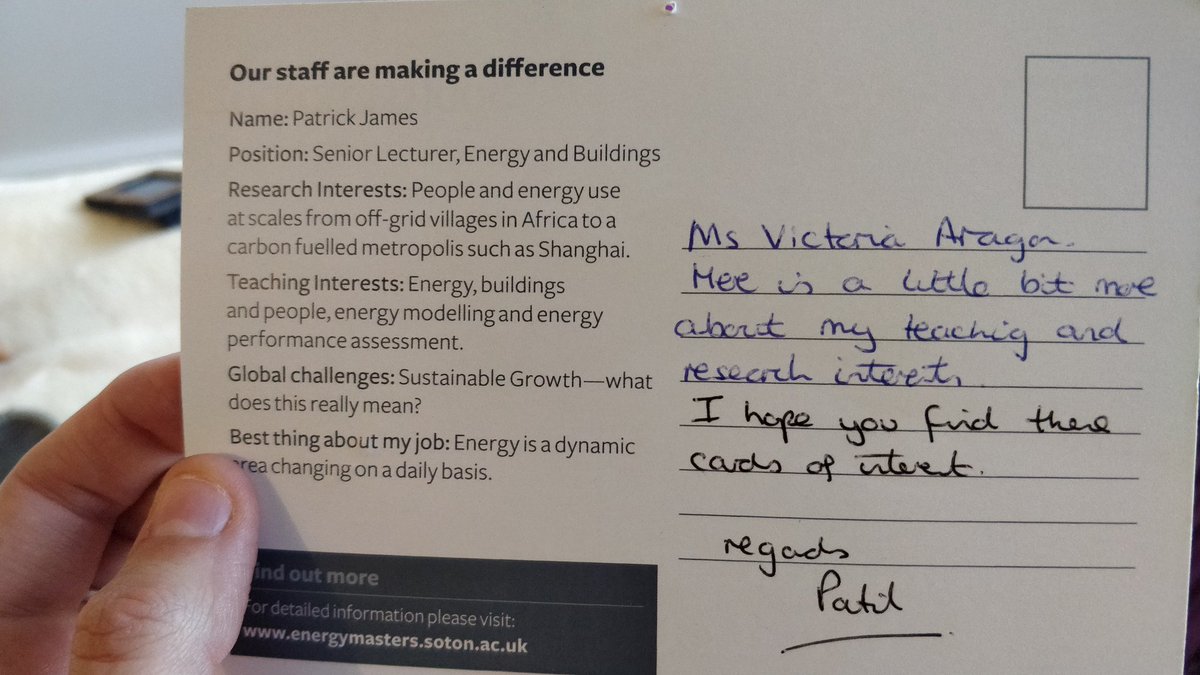 Our staff are making a difference
Name: Patrick James
Position: Senior Lecturer, Energy and Buildings
Research Interests: People and energy use
at scales from off-grid villages in Africa to a
carbon fuelled metropolis such as Shanghai.
Teaching Interests: Energy, buildings
and people, energy modelling and energy
performance assessment.
Global challenges: Sustainable Growth—what
does this really mean?
Best thing about my job: Energy is a dynamic
area changing on a daily basis.
Find out more
For detailed information please visit:
www.energymasters.soton.ac.uk
Ms Victoria Aragon.
Here is a little bit more
about my teaching and
research interests.
I hope you find these
cards of interest.
regards